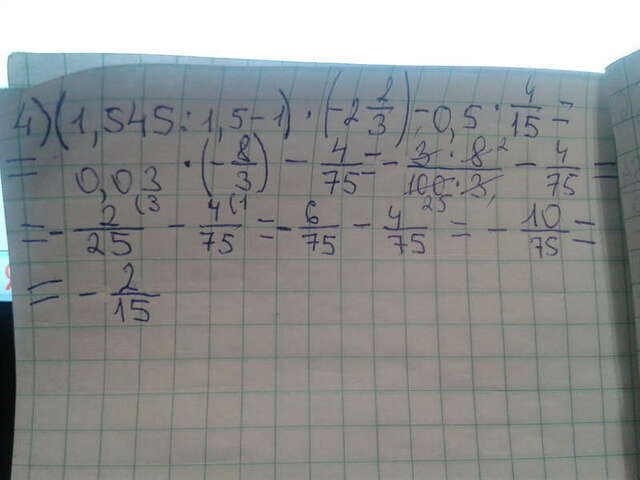 4) (1,545 : 1,5 - 1) · (-2 2/3) - 0,5 · 4/15 =
= 0,03 · (-8/3) - 4/75 = - 3 · 8 2/100 · 3, 25 - 4/75 =
= - 2/25 (3 - 4/75 (1 = - 6/75 - 4/75 = - 10/75 =
= - 2/15